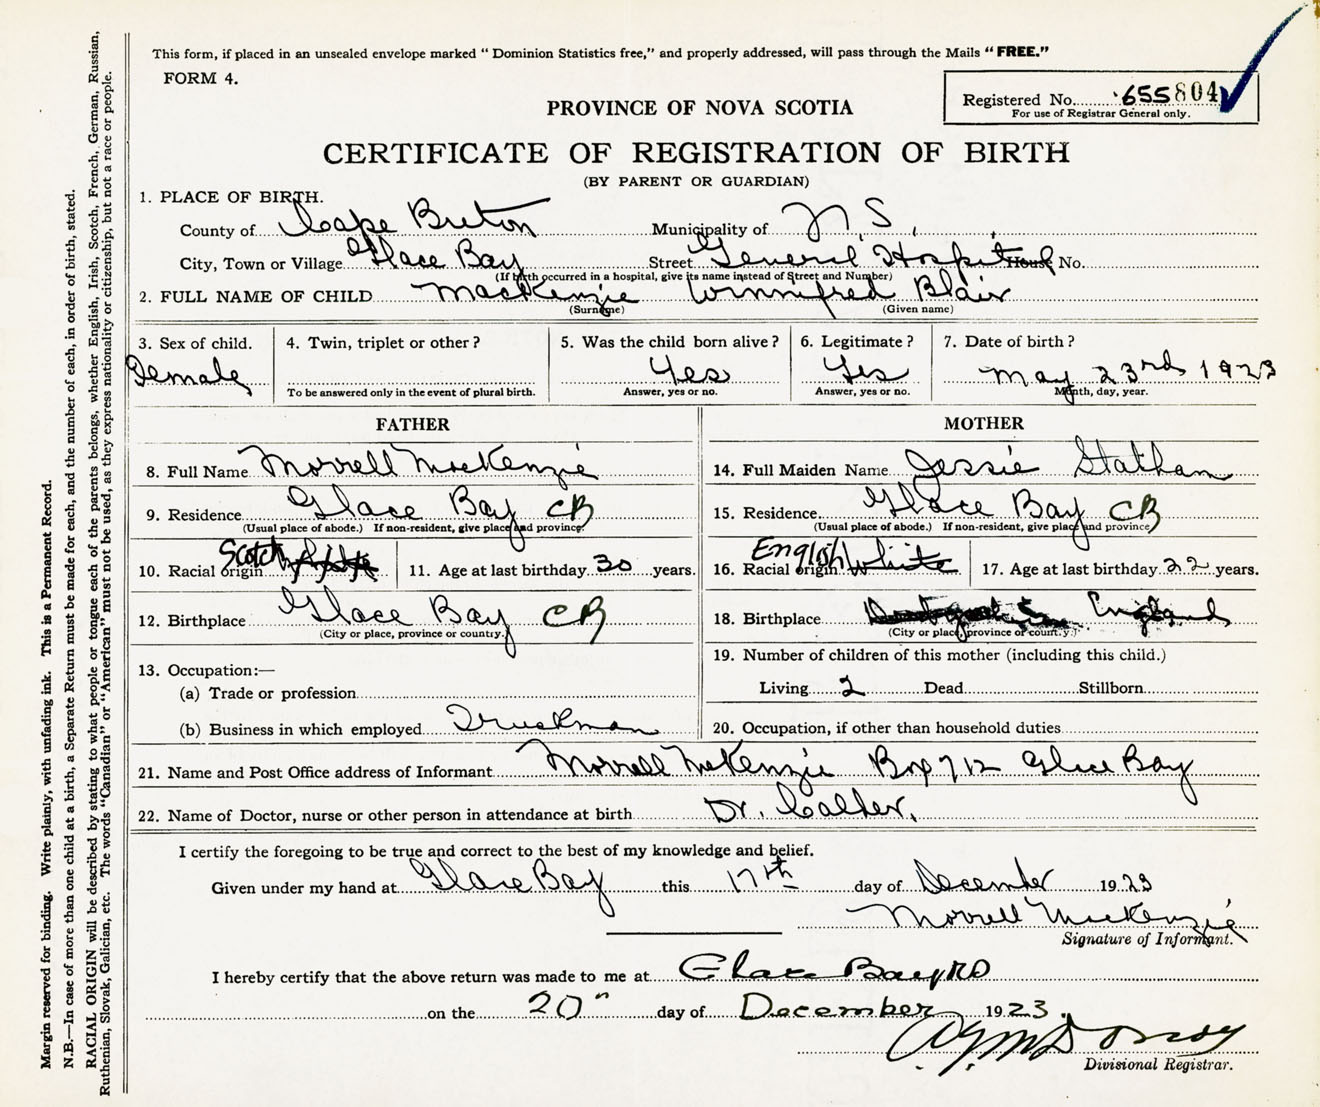 This form, if placed in an unsealed envelope marked "Dominion Statistics free," and properly addressed, will pass through the Mails "FREE."
FORM 4.
Registered No. 655804
For use of Registrar General only.
PROVINCE OF NOVA SCOTIA
CERTIFICATE OF REGISTRATION OF BIRTH
(BY PARENT OR GUARDIAN)
1. PLACE OF BIRTH.
County of Cape Breton Municipality of N S
City, Town or Village Glace Bay Street General Hospital House No.
(If birth occurred in a hospital, give its name instead of Street and Number)
2. FULL NAME OF CHILD MacKenzie Winnifred Blair
(Surname) (Given name)
3. Sex of child. 4. Twin, triplet or other? 5. Was the child born alive? 6. Legitimate? 7. Date of birth?
Female Yes Yes May 23rd 1923
To be answered only in the event of plural birth. Answer, yes or no. Answer, yes or no. Month, day, year.
FATHER MOTHER
8. Full Name Morrell MacKenzie 14. Full Maiden Name Jessie Statham
9. Residence Glace Bay CB 15. Residence Glace Bay CB
(Usual place of abode.) If non-resident, give place and province. (Usual place of abode.) If non-resident, give place and province
10. Racial origin Scotch 11. Age at last birthday 30 years. 16. Racial origin English White 17. Age at last birthday 22 years.
12. Birthplace Glace Bay CB 18. Birthplace England
(City or place, province or country.) (City or place, province or country.)
13. Occupation:— 19. Number of children of this mother (including this child.)
(a) Trade or profession Living 2 Dead Stillborn
(b) Business in which employed Truckman 20. Occupation, if other than household duties
21. Name and Post Office address of Informant Morrell McKenzie Box 712 Glace Bay
22. Name of Doctor, nurse or other person in attendance at birth Dr.
I certify the foregoing to be true and correct to the best of my knowledge and belief.
Given under my hand at Glace Bay this 17th day of December 1923
Morrell MacKenzie
Signature of Informant.
I hereby certify that the above return was made to me at Glace Bay NS
on the 20" day of December 1923.
Divisional Registrar.
Margin reserved for binding. Write plainly, with unfading ink. This is a Permanent Record.
N.B.—In case of more than one child at a birth, a Separate Return must be made for each, and the number of each, in order of birth, stated.
RACIAL ORIGIN will be described by stating to what people or tongue each of the parents belongs, whether English, Irish, Scotch, French, German, Russian,
Ruthenian, Slovak, Galician, etc. The words "Canadian" or "American" must not be used, as they express nationality or citizenship, but not a race or people.